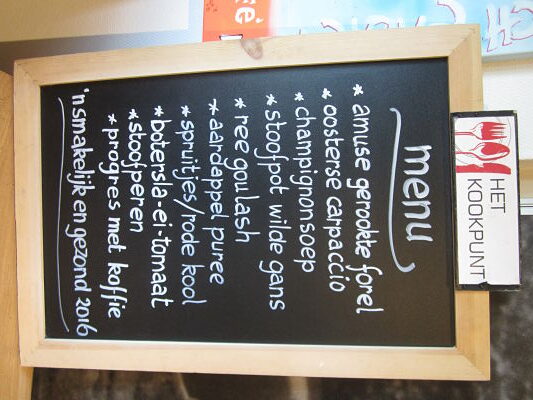 HET
KOOKPUNT
menu
* amuse gerookte forel
* oosterse carpaccio
* champignonsoep
* stoofpot wilde gans
* ree goulash
* aardappel puree
* spruitjes/rode kool
* botersla-ei-tomaat
* stoofperen
* progres met koffie
'n smakelijk en gezond 2016